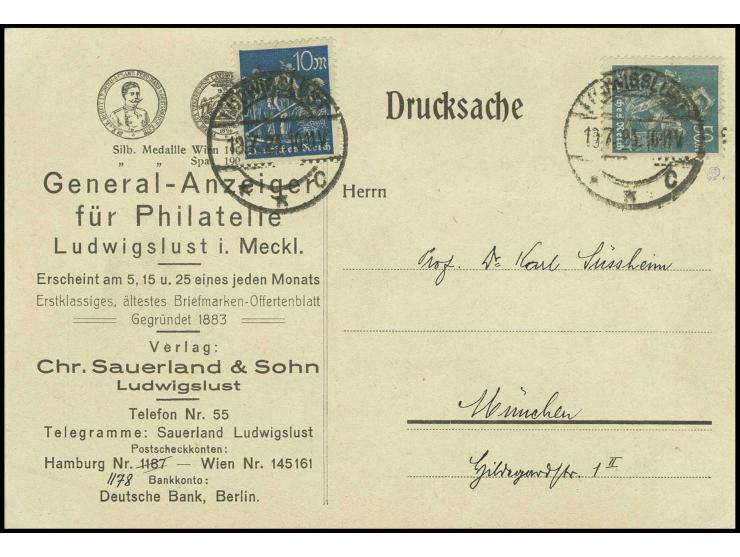 10M
50M
Deutsches Reich
Drucksache
Silb. Medaille Wien
" " Spa
General-Anzeiger
für Philatelie
Ludwigslust i. Meckl.
Erscheint am 5, 15 u. 25 eines jeden Monats
Erstklassiges, ältestes Briefmarken-Offertenblatt
Gegründet 1883
Verlag:
Chr. Sauerland & Sohn
Ludwigslust
Telefon Nr. 55
Telegramme: Sauerland Ludwigslust
Postscheckkonten:
Hamburg Nr. 1187 — Wien Nr. 145161
1178 Bankkonto:
Deutsche Bank, Berlin.
Herrn
Prof. Dr. Karl Süssheim
München
Hildegardstr. 1 II